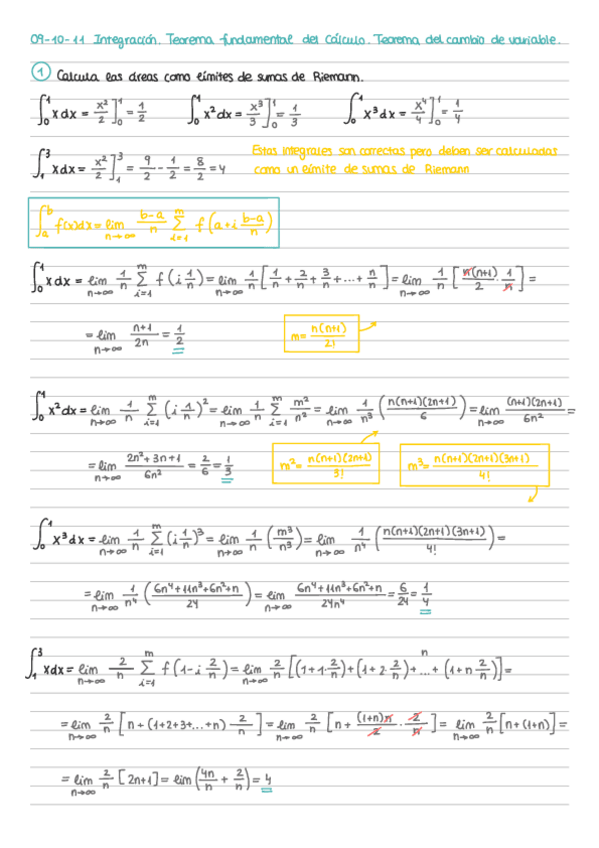 09-10-11 Integración. Teorema fundamental del Cálculo. Teorema del cambio de variable.
① Calcula las áreas como límites de sumas de Riemann.
∫₀¹ x dx = x²/2 ]₀¹ = 1/2   ∫₀¹ x² dx = x³/3 ]₀¹ = 1/3   ∫₀¹ x³ dx = x⁴/4 ]₀¹ = 1/4
∫₁³ x dx = x²/2 ]₁³ = 9/2 - 1/2 = 8/2 = 4   Estas integrales son correctas pero deben ser calculadas
como un límite de sumas de Riemann
∫ₐᵇ f(x)dx = lim n→∞ (b-a)/n Σ i=1 m f(a+i (b-a)/n)
∫₀¹ x dx = lim n→∞ 1/n Σ i=1 m f(i 1/n) = lim n→∞ 1/n [1/n + 2/n + 3/n + ... + n/n] = lim n→∞ 1/n [n(n+1)/2 · 1/n] =
= lim n→∞ (n+1)/2n = 1/2   m = n(n+1)/2!
∫₀¹ x² dx = lim n→∞ 1/n Σ i=1 m (i 1/n)² = lim n→∞ 1/n Σ i=1 m m²/n² = lim n→∞ 1/n³ (n(n+1)(2n+1)/6) = lim n→∞ (n+1)(2n+1)/6n² =
= lim n→∞ (2n²+3n+1)/6n² = 2/6 = 1/3   m² = n(n+1)(2n+1)/3!   m³ = n(n+1)(2n+1)(3n+1)/4!
∫₀¹ x³ dx = lim n→∞ 1/n Σ i=1 m (i 1/n)³ = lim n→∞ 1/n (m³/n³) = lim n→∞ 1/n⁴ (n(n+1)(2n+1)(3n+1)/4!) =
= lim n→∞ 1/n⁴ (6n⁴+11n³+6n²+n/24) = lim n→∞ 6n⁴+11n³+6n²+n/24n⁴ = 6/24 = 1/4
∫₁³ x dx = lim n→∞ 2/n Σ i=1 m f(1-i 2/n) = lim n→∞ 2/n [(1+1·2/n)+(1+2·2/n)+...+(1+n 2/n)] = n
= lim n→∞ 2/n [n+(1+2+3+...+n) 2/n] = lim n→∞ 2/n [n + (1+n)n/2 · 2/n] = lim n→∞ 2/n [n+(1+n)] =
= lim n→∞ 2/n [2n+1] = lim (4n/n + 2/n) = 4